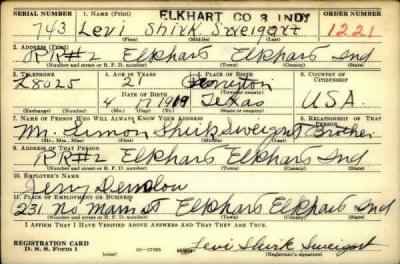 SERIAL NUMBER 1. NAME (Print) ELKHART CO 3 INDY ORDER NUMBER
743 Levi Shirk Sweigart 1221
(First) (Middle) (Last)
2. ADDRESS (Print)
RR#2 Elkhart Elkhart Ind
(Number and street or R. F. D. number) (Town) (County) (State)
3. TELEPHONE 4. AGE IN YEARS 5. PLACE OF BIRTH 6. COUNTRY OF CITIZENSHIP
21
DATE OF BIRTH (Town or county)
L8025 4 17 1919 Texas U.S.A.
(Exchange) (Number) (Mo.) (Day) (Yr.) (State or country)
7. NAME OF PERSON WHO WILL ALWAYS KNOW YOUR ADDRESS 8. RELATIONSHIP OF THAT PERSON
Mr. Simon Shirk Sweigart Brother
(Mr., Mrs., Miss) (First) (Middle) (Last)
9. ADDRESS OF THAT PERSON
RR#2 Elkhart Elkhart Ind
(Number and street or R. F. D. number) (Town) (County) (State)
10. EMPLOYER'S NAME
11. PLACE OF EMPLOYMENT OR BUSINESS
231 No Main st Elkhart Elkhart Ind
(Number and street or R. F. D. number) (Town) (County) (State)
I AFFIRM THAT I HAVE VERIFIED ABOVE ANSWERS AND THAT THEY ARE TRUE.
REGISTRATION CARD
D. S. S. Form 1 (over) Levi Shirk Sweigart
(Registrant's signature)